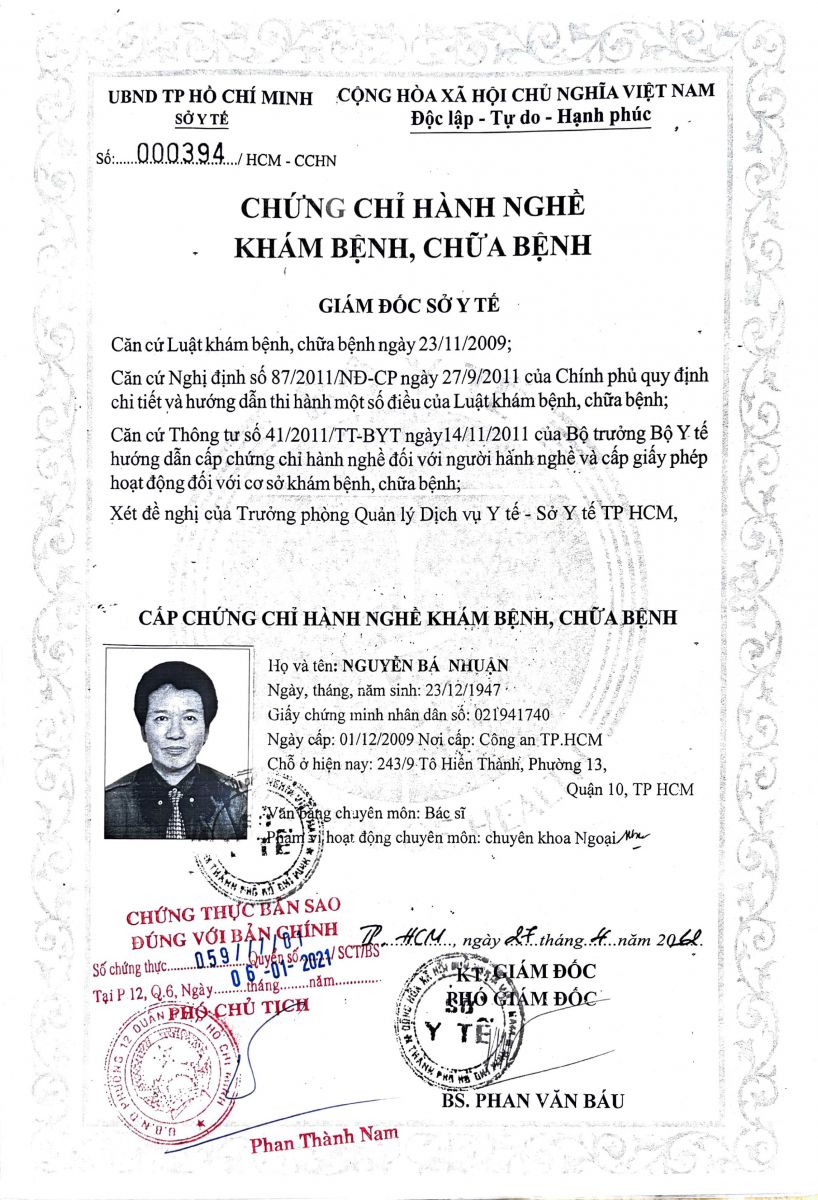 UBND TP HỒ CHÍ MINH
SỞ Y TẾ
CỘNG HÒA XÃ HỘI CHỦ NGHĨA VIỆT NAM
Độc lập - Tự do - Hạnh phúc
Số:.....000394.../ HCM - CCHN
CHỨNG CHỈ HÀNH NGHỀ
KHÁM BỆNH, CHỮA BỆNH
GIÁM ĐỐC SỞ Y TẾ
Căn cứ Luật khám bệnh, chữa bệnh ngày 23/11/2009;
Căn cứ Nghị định số 87/2011/NĐ-CP ngày 27/9/2011 của Chính phủ quy định
chi tiết và hướng dẫn thi hành một số điều của Luật khám bệnh, chữa bệnh;
Căn cứ Thông tư số 41/2011/TT-BYT ngày14/11/2011 của Bộ trưởng Bộ Y tế
hướng dẫn cấp chứng chỉ hành nghề đối với người hành nghề và cấp giấy phép
hoạt động đối với cơ sở khám bệnh, chữa bệnh;
Xét đề nghị của Trưởng phòng Quản lý Dịch vụ Y tế - Sở Y tế TP HCM,
CẤP CHỨNG CHỈ HÀNH NGHỀ KHÁM BỆNH, CHỮA BỆNH
Họ và tên: NGUYỄN BÁ NHUẬN
Ngày, tháng, năm sinh: 23/12/1947
Giấy chứng minh nhân dân số: 021941740
Ngày cấp: 01/12/2009 Nơi cấp: Công an TP.HCM
Chỗ ở hiện nay: 243/9 Tô Hiến Thành, Phường 13,
Quận 10, TP HCM
Văn bằng chuyên môn: Bác sĩ
Phạm vi hoạt động chuyên môn: chuyên khoa Ngoại
CHỨNG THỰC BẢN SAO
ĐÚNG VỚI BẢN CHÍNH
Số chứng thực.....059.....Quyển số.../SCT/BS
Tại P 12, Q.6, Ngày.....tháng.....năm.....
06-01-2021
PHÓ CHỦ TỊCH
U.B.N.D PHƯỜNG 12 QUẬN HỒ CHÍ MINH
Phan Thành Nam
TP. HCM, ngày 27 tháng 4 năm 20
KT. GIÁM ĐỐC
PHÓ GIÁM ĐỐC
SỞ
Y TẾ
THÀNH PHỐ HỒ CHÍ MINH
BS. PHAN VĂN BÁU